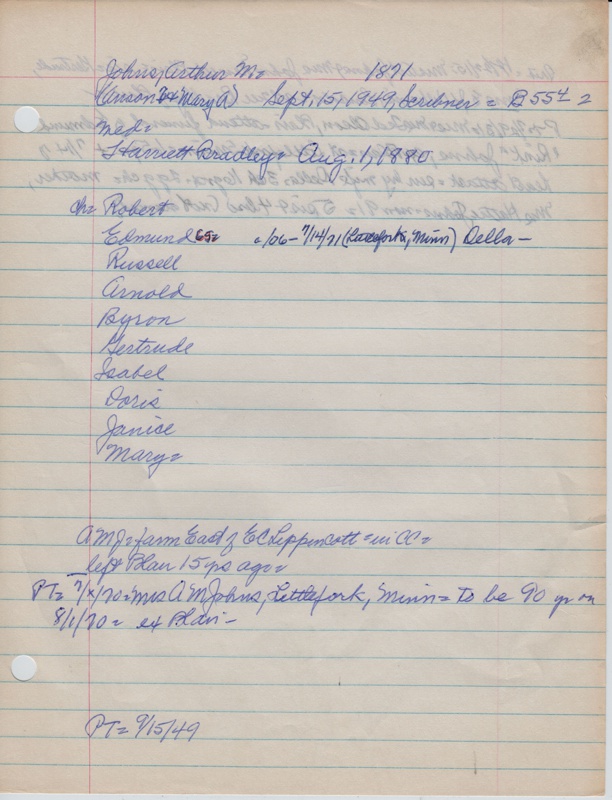 Johns, Arthur M= 1871
(Anson & Mary A) Sept. 15, 1949, Scribner = B 554 2
med=
Harriett Bradley= Aug. 1, 1880
ch= Robert
Edmund 65= c/06 - 7/14/71 (Littlefork, Minn) Della -
Russell
Arnold
Byron
Gertrude
Isabel
Doris
Janise
Mary=
AMJ= farm East of EC Lippincott = in CC=
left Blair 15 yrs ago=
PT= 7/x/70= Mrs A M Johns, Littlefork, Minn= to be 90 yr on
8/1/70= ex Blair-
PT= 9/15/49